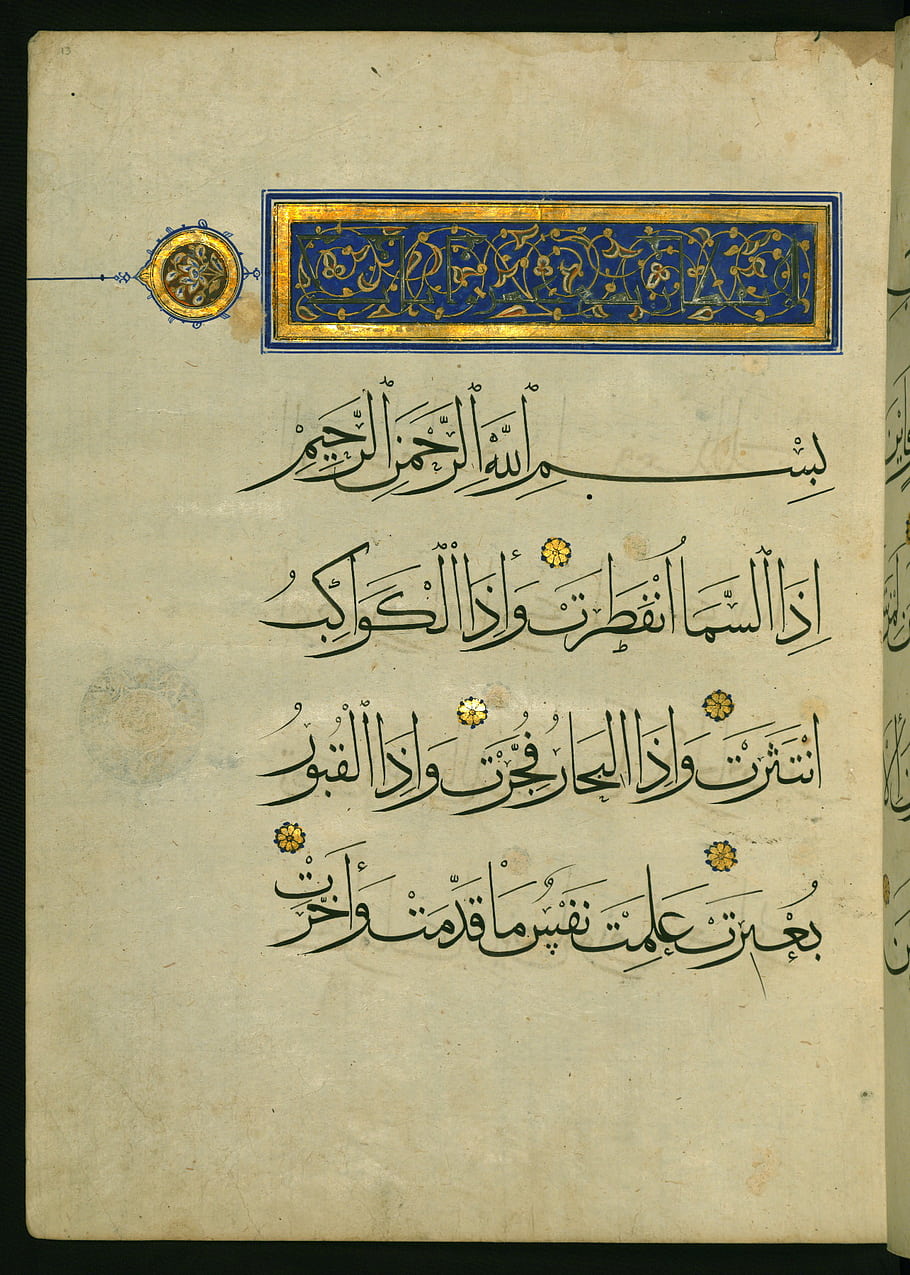 13
بِسْمِ اللَّهِ الرَّحْمَنِ الرَّحِيمِ
اِذَا السَّمَا انْفَطَرَتْ وَإِذَا الْكَوَاكِبُ
انْتَثَرَتْ وَإِذَا الْبِحَارُ فُجِّرَتْ وَإِذَا الْقُبُورُ
بُعْثِرَتْ عَلِمَتْ نَفْسٌ مَا قَدَّمَتْ وَأَخَّرَتْ